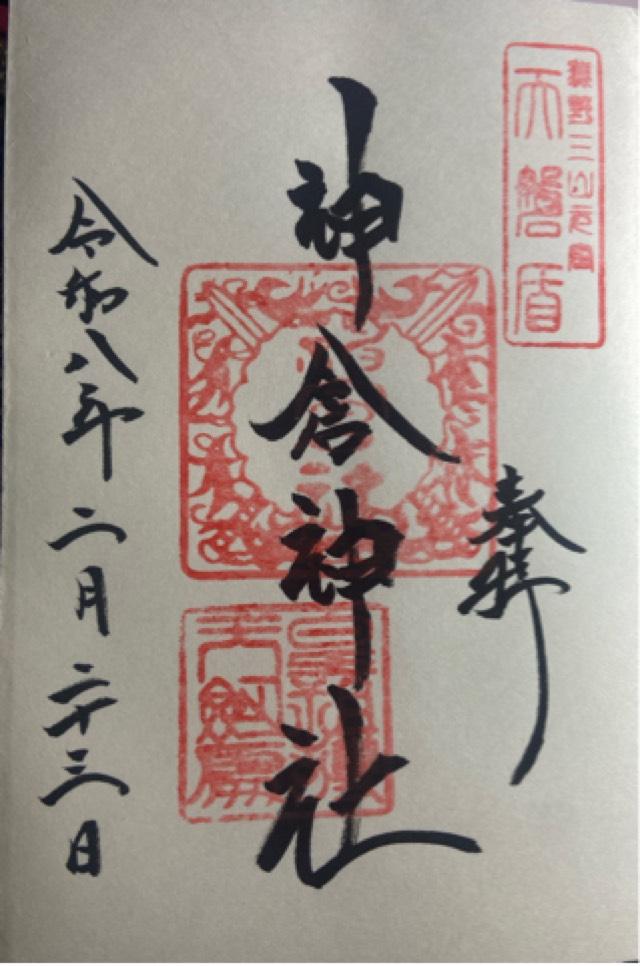 熊野三山元宮
天磐盾
奉拝
神倉神社
令和八年二月二十三日